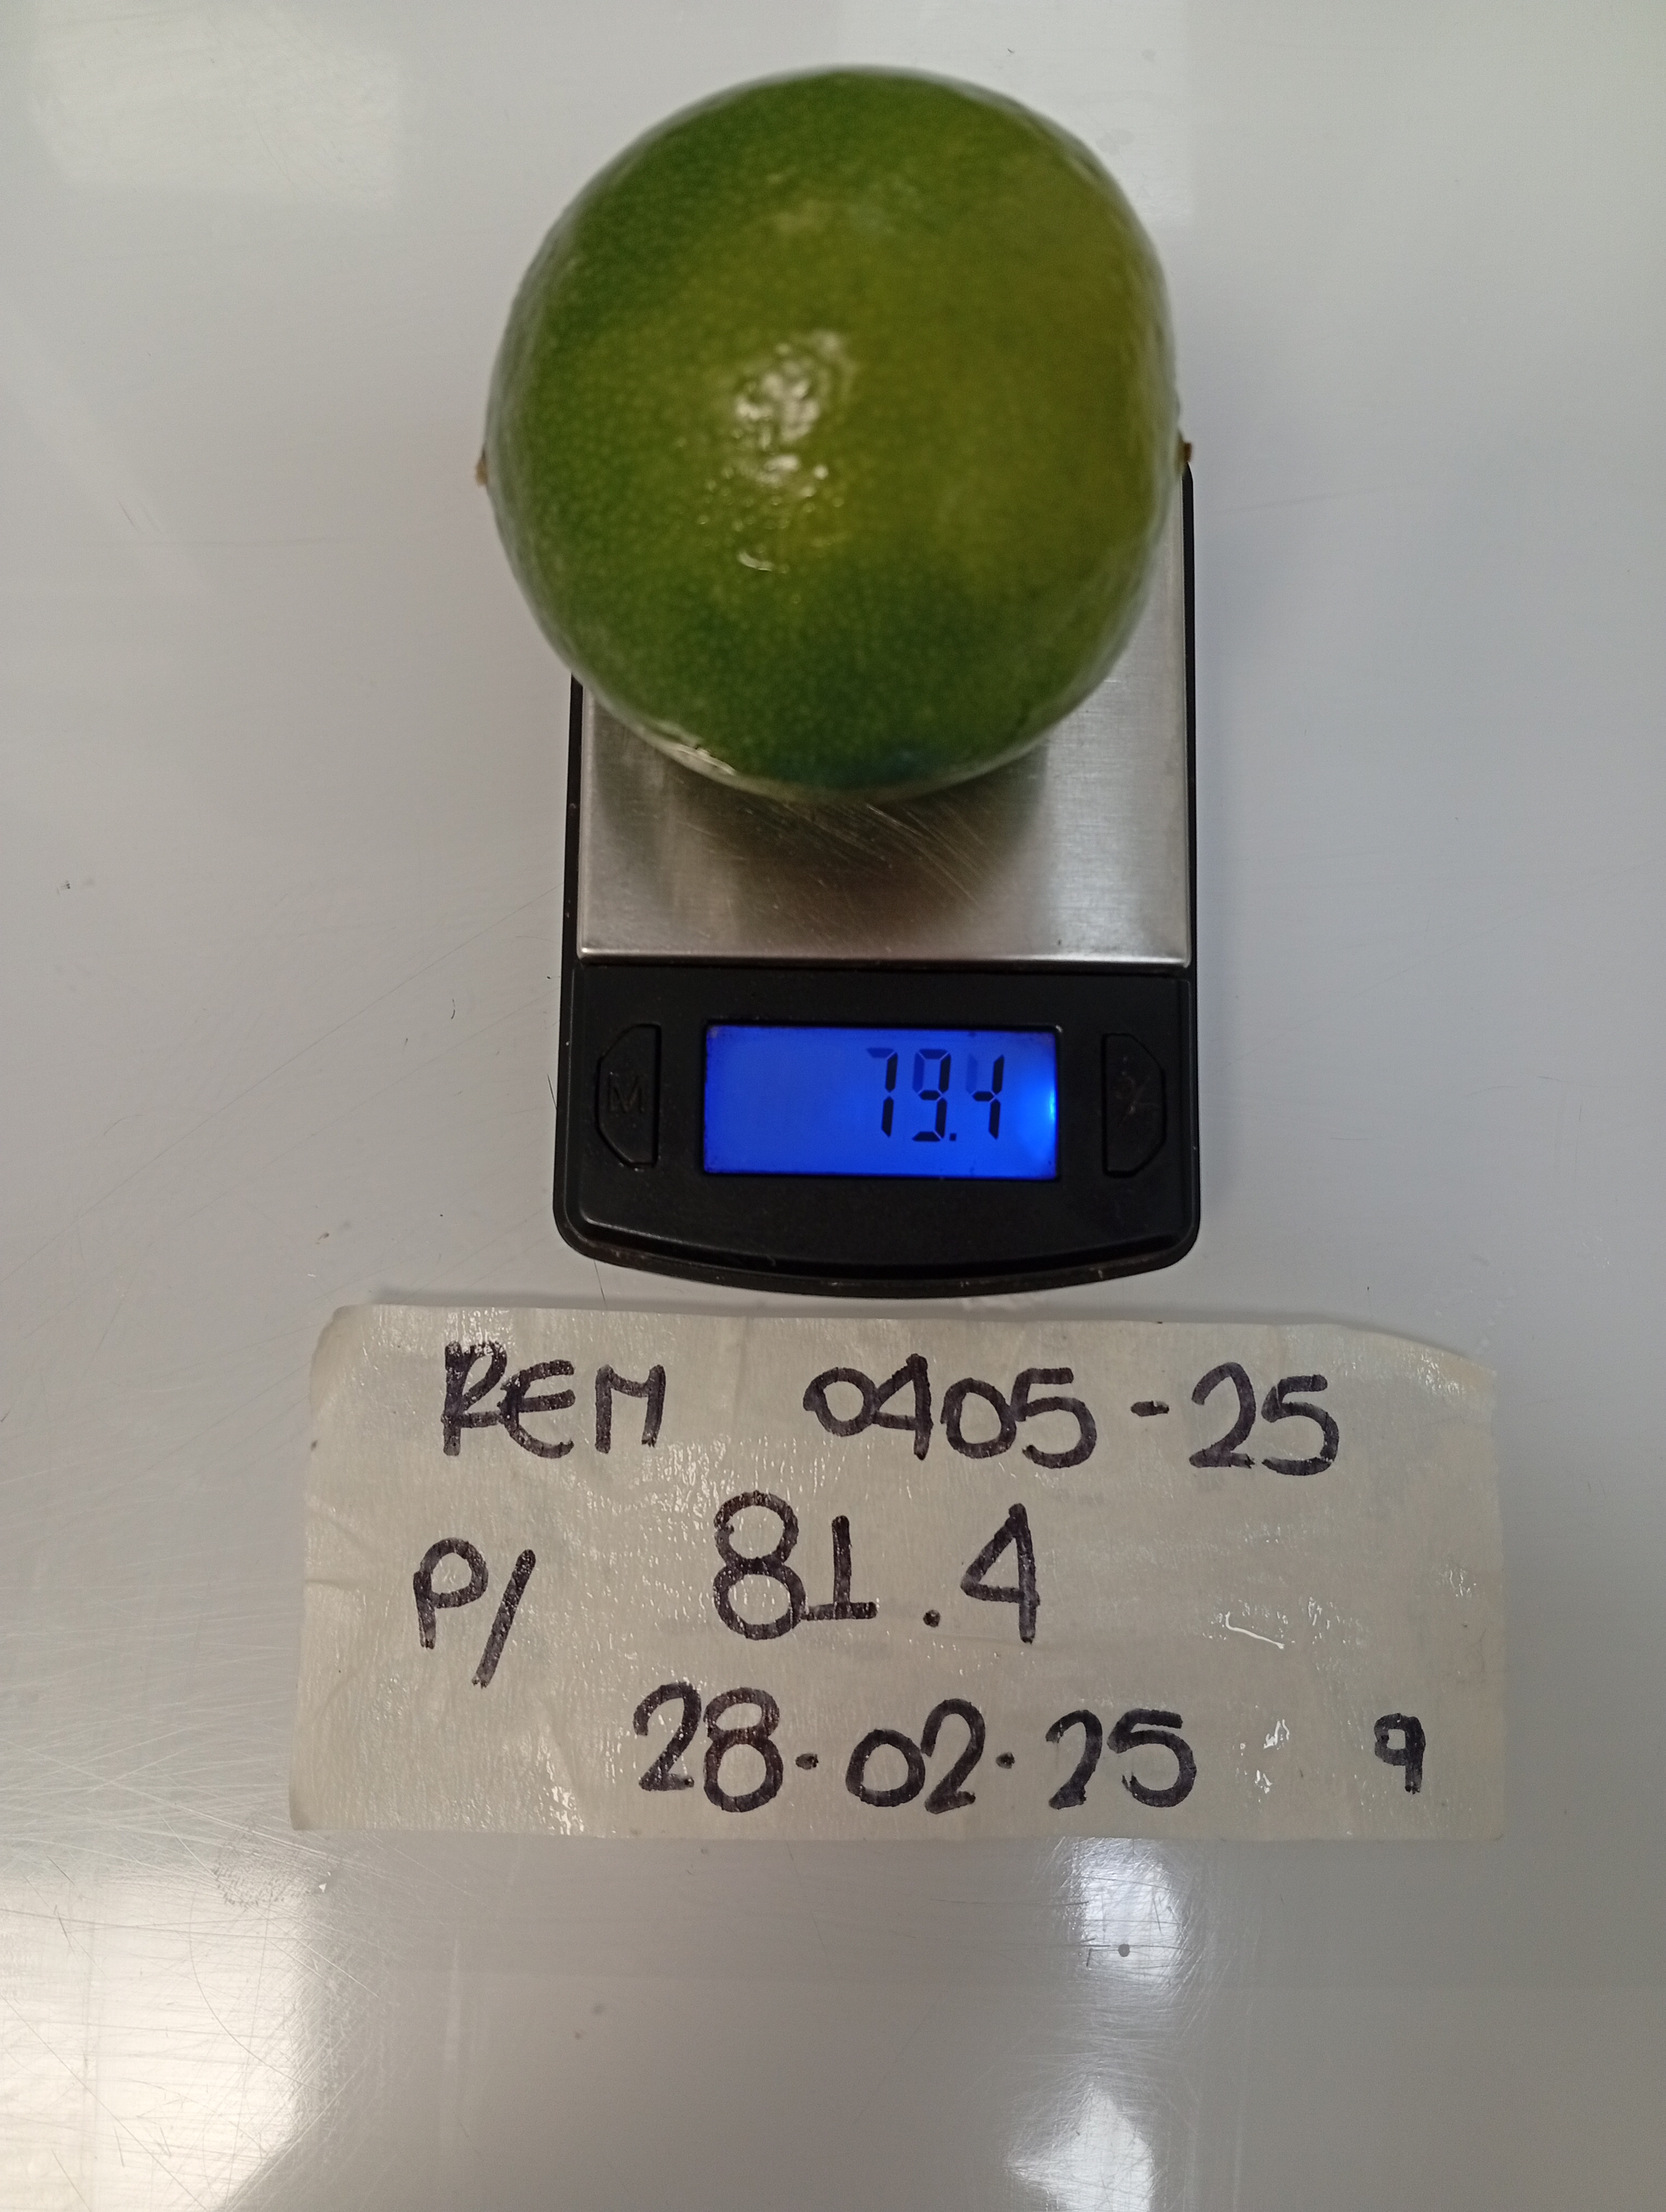 79.4
M
REM 0405-25
P/ 81.4
28.02.25 9